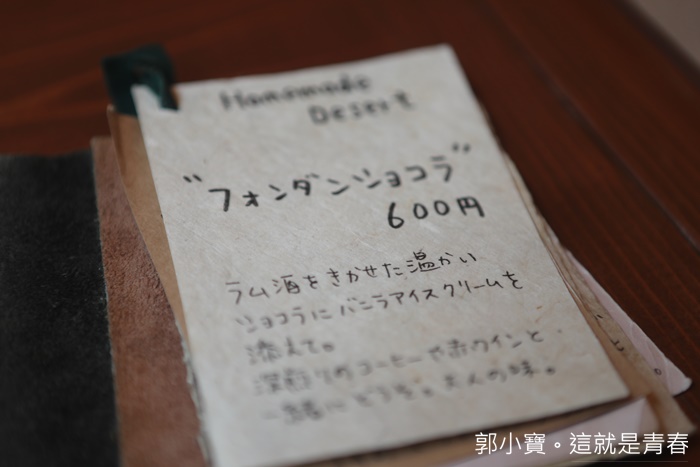 Handmade
Desert
"フォンダンショコラ"
600円
ラム酒をきかせた温かい
ショコラにバニラアイスクリームを
添えて。
深煎りのコーヒーや赤ワインと
一緒にどうぞ。大人の味。
郭小寶。這就是青春